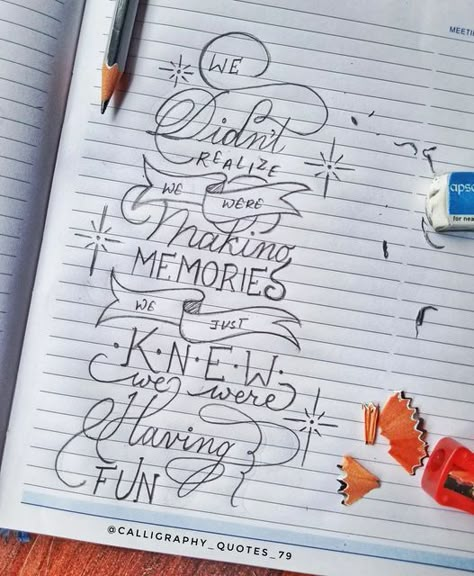 MEETI
WE
Didn't
REALIZE
WE WERE
Making
MEMORIES
WE JUST
K·N·E·W·
we were
Having
FUN
apsa
for nea
@CALLIGRAPHY_QUOTES_79